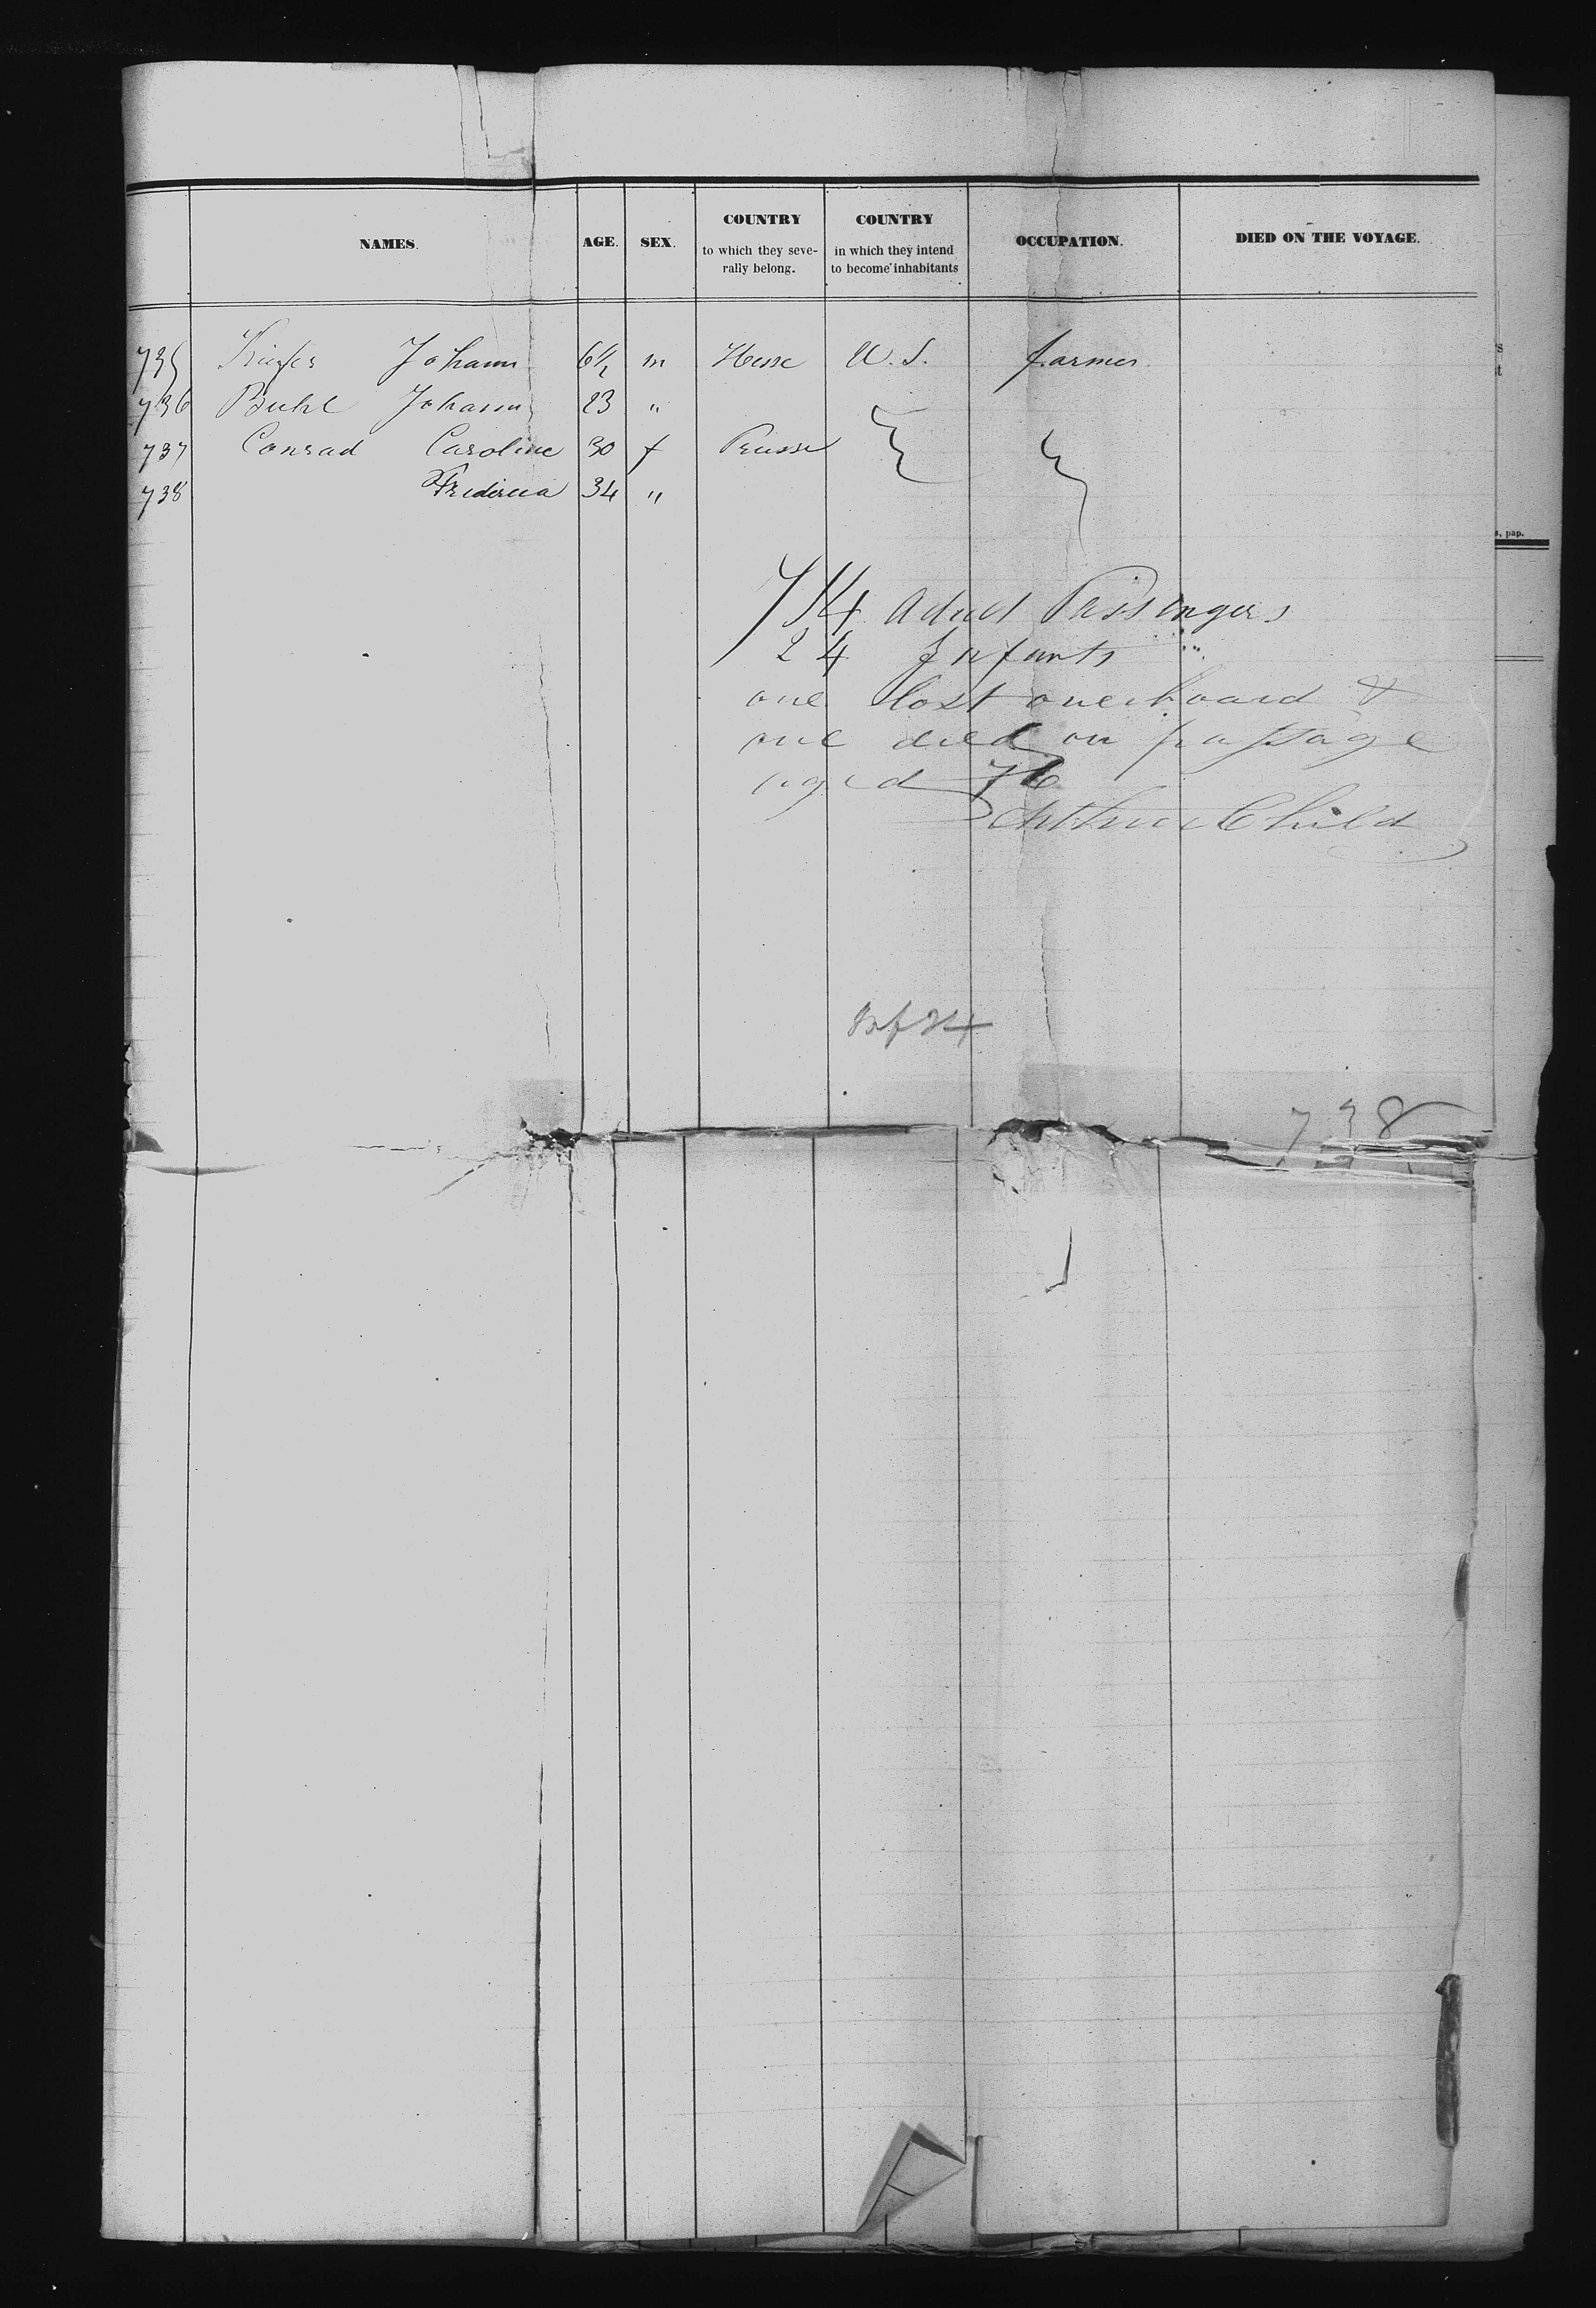 NAMES. AGE. SEX. COUNTRY to which they severally belong. COUNTRY in which they intend to become inhabitants OCCUPATION. DIED ON THE VOYAGE.
735 Johann m Hesse U. S. farmer
736 Buhl Johann 23 "
737 Conrad Caroline 30 f Prusse
738 34 "
714 Adult Passengers
24 Infants "
one lost overboard &
one died on passage
aged 76
Child
Inf 24
738
s, pap.